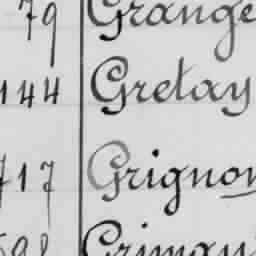 79 Grange
144 Gretay
717 Grignon